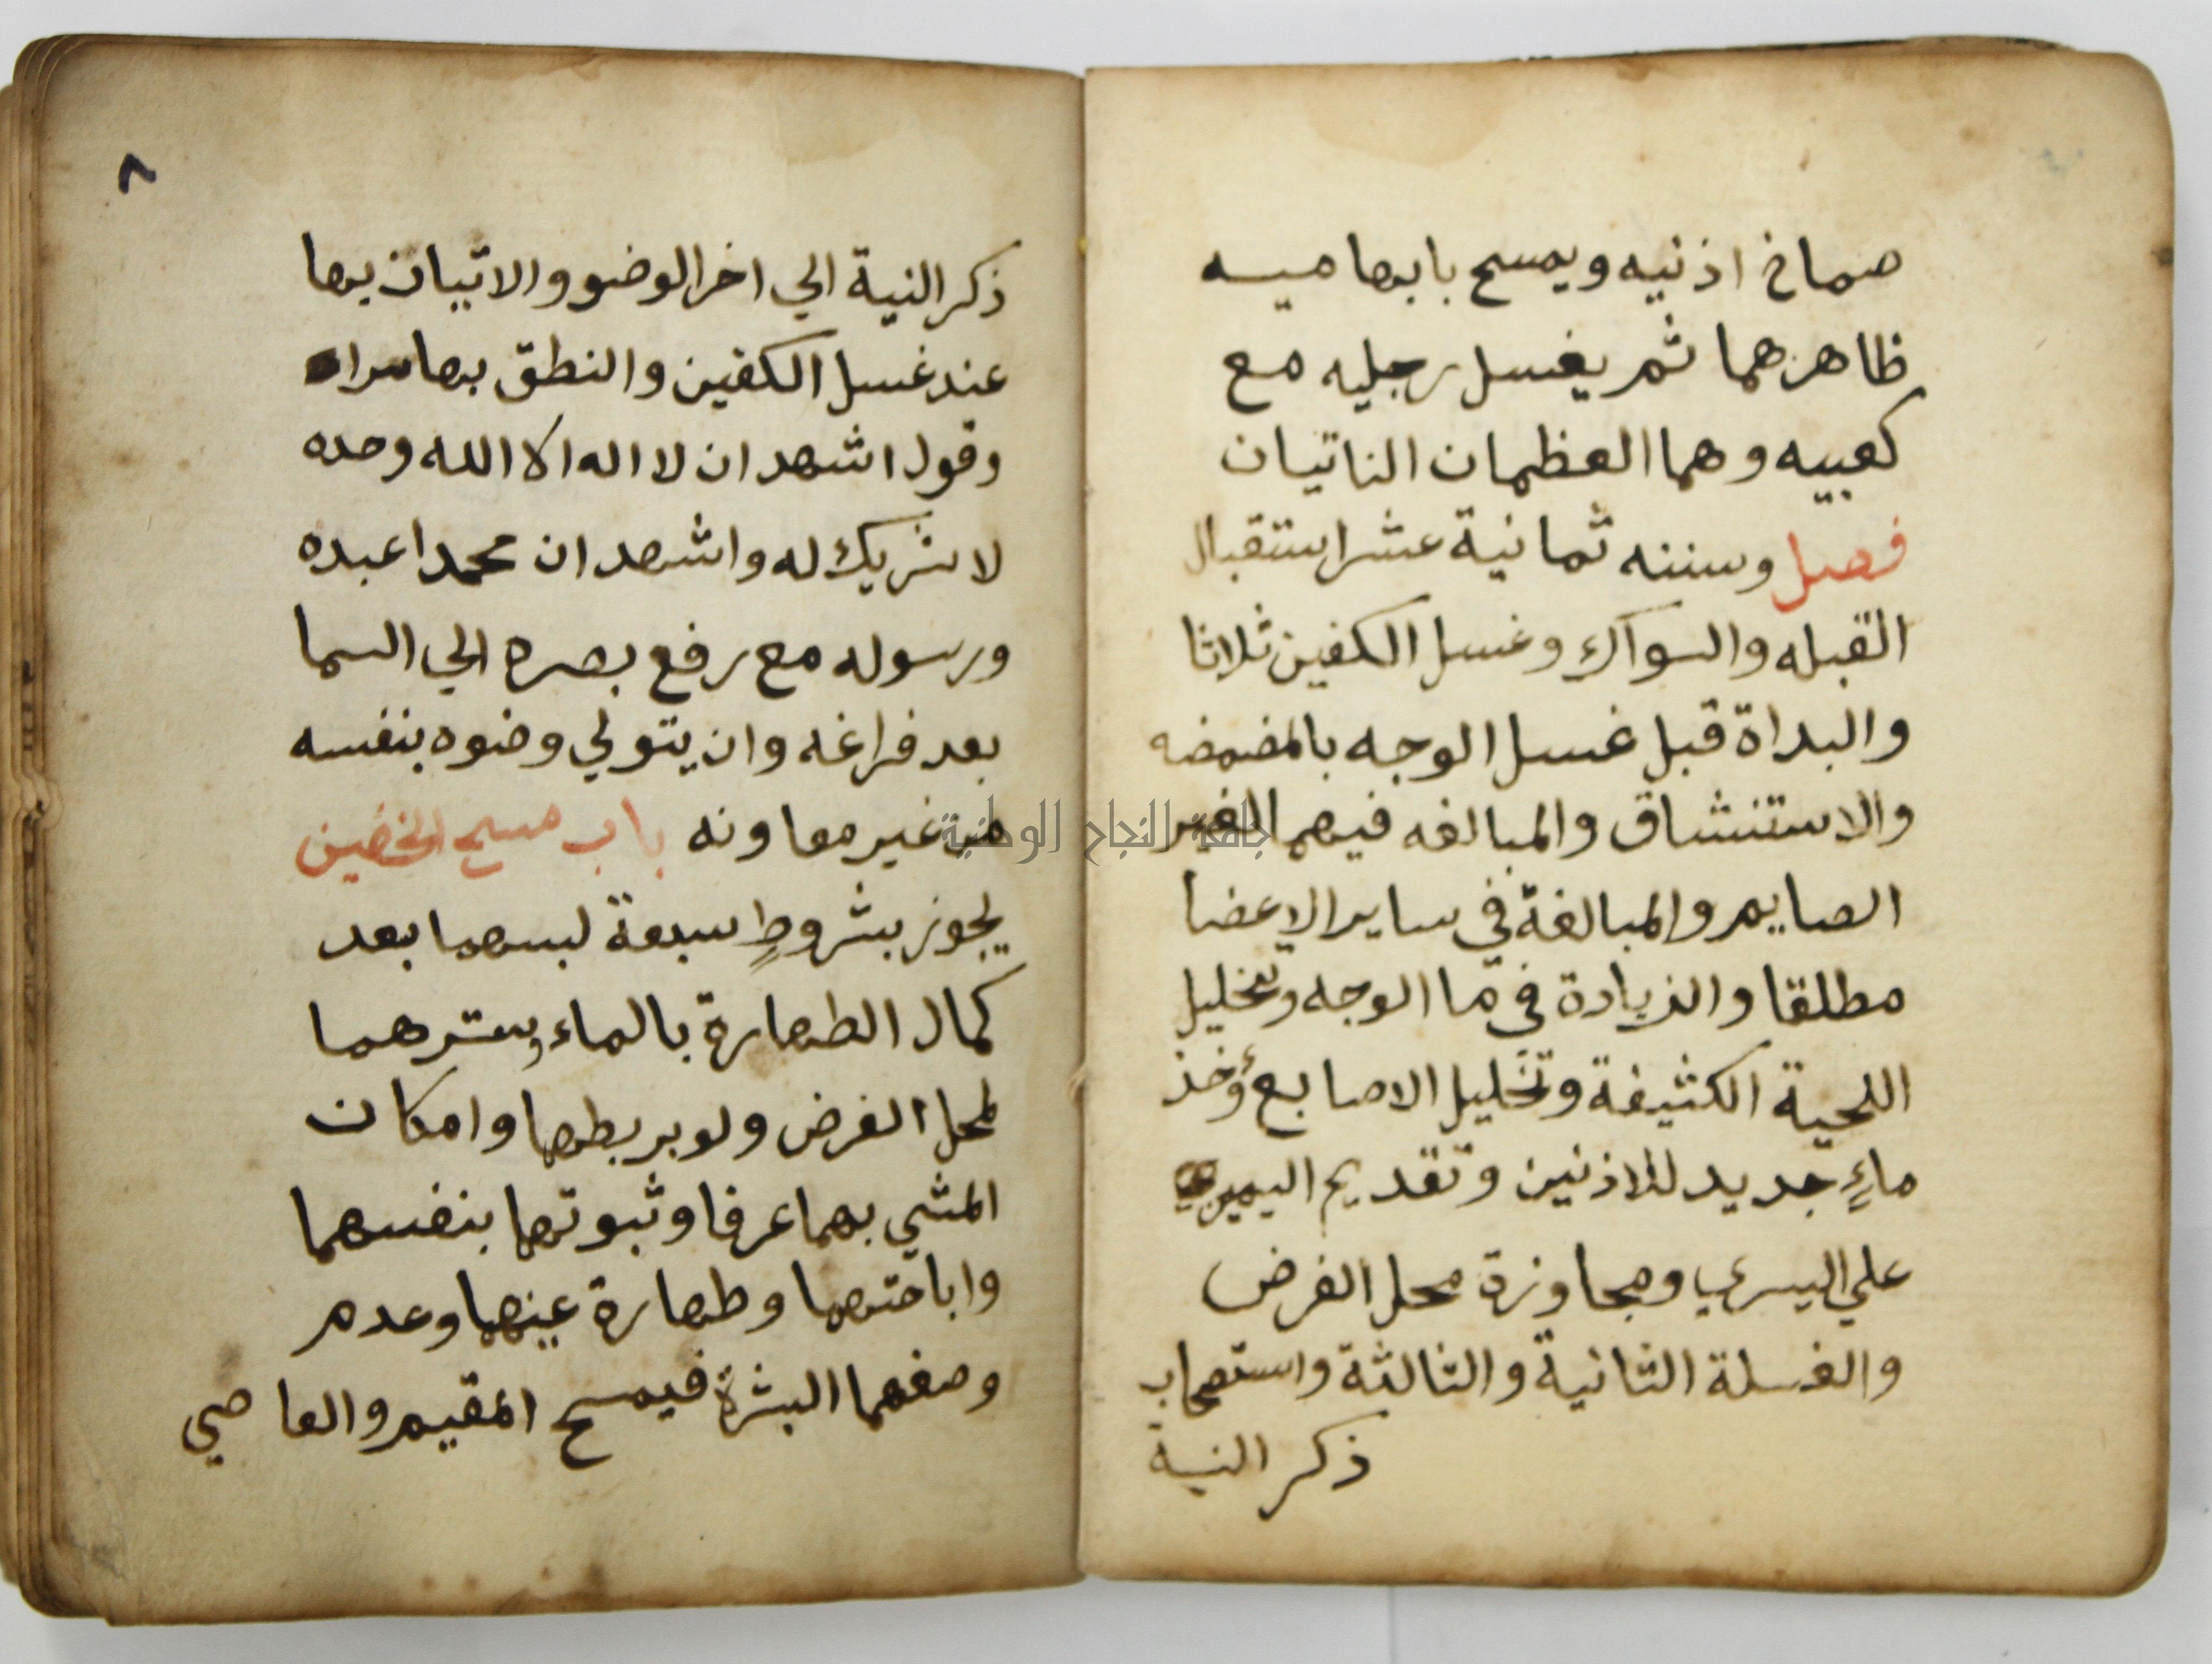 صماخ اذنيه ويمسح بابهاميه
ظاهرهما ثم يغسل رجليه مع
كعبيه وهما العظمان الناتيان
فصل وسننه ثمانية عشر استقبال
القبله والسواك وغسل الكفين ثلاثا
والبداة قبل غسل الوجه بالمضمضه
والاستنشاق والمبالغه فيهما لغير
الصايم والمبالغة في ساير الاعضا
مطلقا والزيادة في ما الوجه وتخليل
اللحية الكثيفة وتخليل الاصابع واخذ
ماءٍ جديد للاذنين وتقديم اليمني
علي اليسري ومجاوزة محل الفرض
والغسلة الثانية والثالثة واستصحاب
ذكر النية
٨
ذكر النية الي اخر الوضو والاتيان بها
عند غسل الكفين والنطق بها سرا
وقول اشهد ان لا اله الا الله وحده
لا شريك له واشهد ان محمدا عبده
ورسوله مع رفع بصره الي السما
بعد فراغه وان يتولي وضوه بنفسه
من غير معاونه باب مسح الخفين
يجوز بشروطٍ سبعة لبسهما بعد
كمال الطهارة بالماء وسترهما
لمحل الفرض ولو بربطهما وامكان
المشي بهما عرفا وثبوتهما بنفسهما
واباحتهما وطهارة عينهما وعدم
وصفهما البشرة فيمسح المقيم والعاصي
جامعة النجاح الوطنية